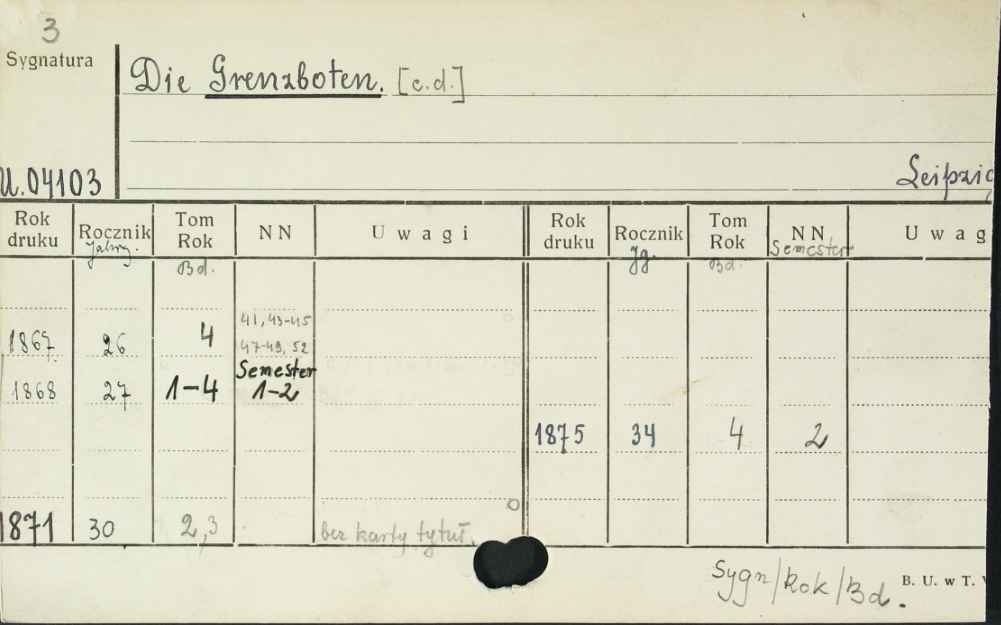 3
Sygnatura
Die Grenzboten. [c.d.]
U.04103
Leipzig
Rok druku Rocznik Tom Rok NN Uwagi Rok druku Rocznik Tom Rok NN Uwag
Bd. Jg. Bd. Semester
41, 43-45
1867 26 4 47-49, 52
Semester
1868 27 1-4 1-2
1875 34 4 2
1871 30 2,3 bez karty tytuł.
Sygn/Rok/Bd.
B. U. w T.